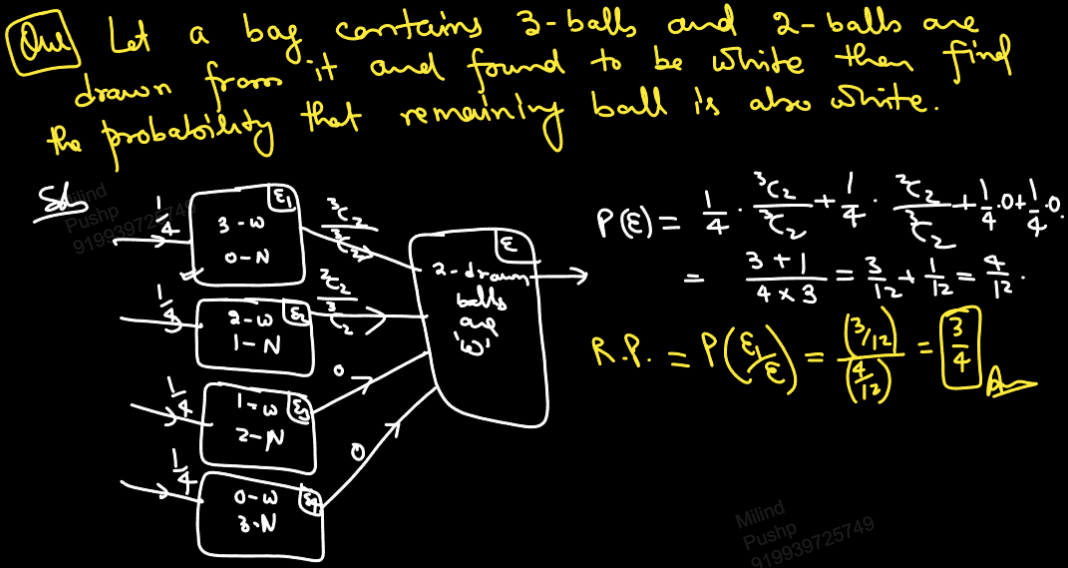 Que Let a bag contains 3-balls and 2-balls are
drawn from it and found to be white then find
the probability that remaining ball is also white.
Sol
1/4
3-W
0-N
E1
³C₂/³C₂
1/4
2-W
1-N
E2
²C₂/³C₂
1/4
1-W
2-N
E3
0
1/4
0-W
3-N
E4
0
E
2-drawn
balls
are
'W'
P(E) = 1/4 · ³C₂/³C₂ + 1/4 · ²C₂/³C₂ + 1/4·0 + 1/4·0.
= (3+1)/(4×3) = 3/12 + 1/12 = 4/12.
R.P. = P(E1/E) = (3/12)/(4/12) = 3/4 Ans
Milind
Pushp
919939725749
Milind
Pushp
919939725749